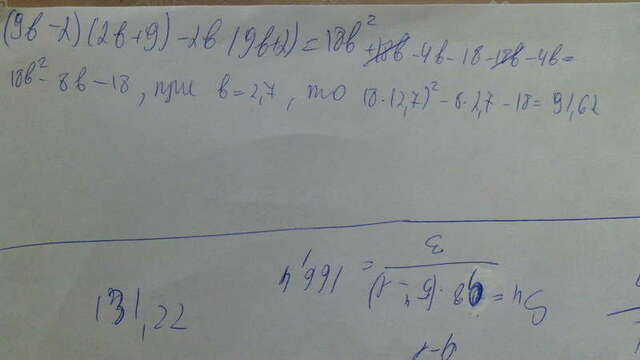 (9b-2)(2b+9)-2b(9b+2)=18b²+18b-4b-18-18b-4b=
18b²-8b-18, при b=2,7, то 18·(2,7)²-8·2,7-18=91,62
131,22
166,4
3